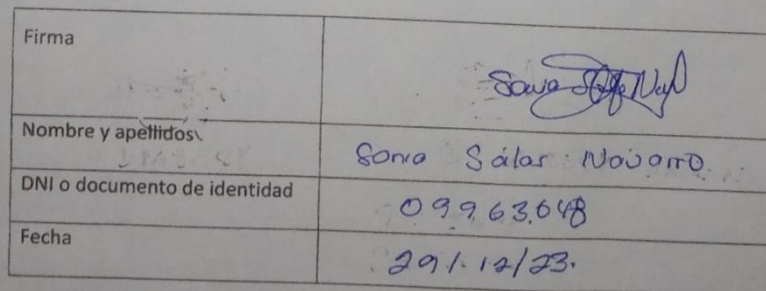 Firma
Nombre y apellidos
Sonia Salas Navarro
DNI o documento de identidad
09963048
Fecha
29/12/23.